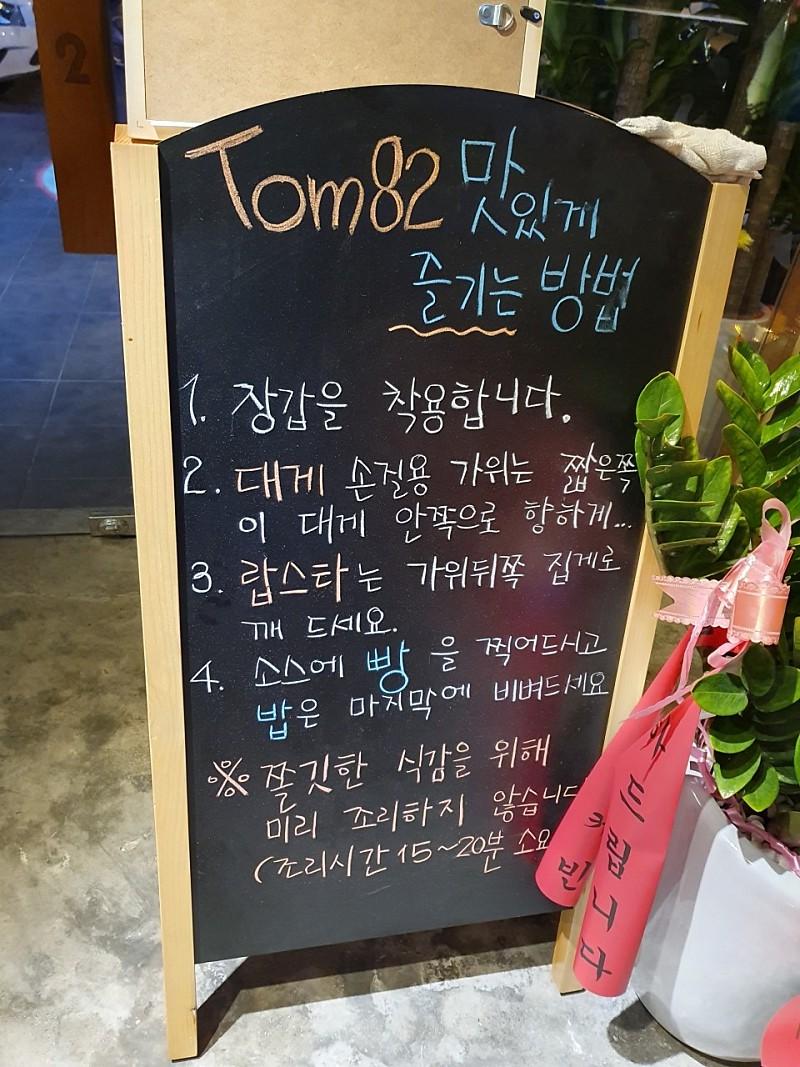 2
Tom82 맛있게
즐기는 방법
1. 장갑을 착용합니다.
2. 대게 손질용 가위는 짧은쪽
이 대게 안쪽으로 향하게...
3. 랍스타는 가위뒤쪽 집게로
깨 드세요.
4. 소스에 빵을 찍어드시고
밥은 마지막에 비벼드세요
※ 쫄깃한 식감을 위해
미리 조리하지 않습니다
(조리시간 15~20분 소요
드립니다
빈